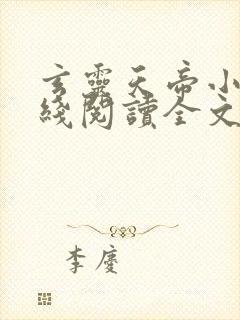 玄靈天帝小
綫閱讀全文
李慶